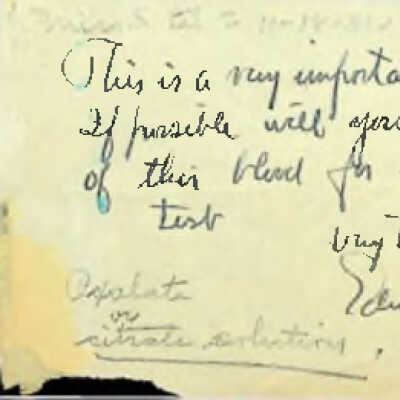 This is a very importa
If possible will you
of this blood for
test
very
Oxalate
or
citrate solutions.